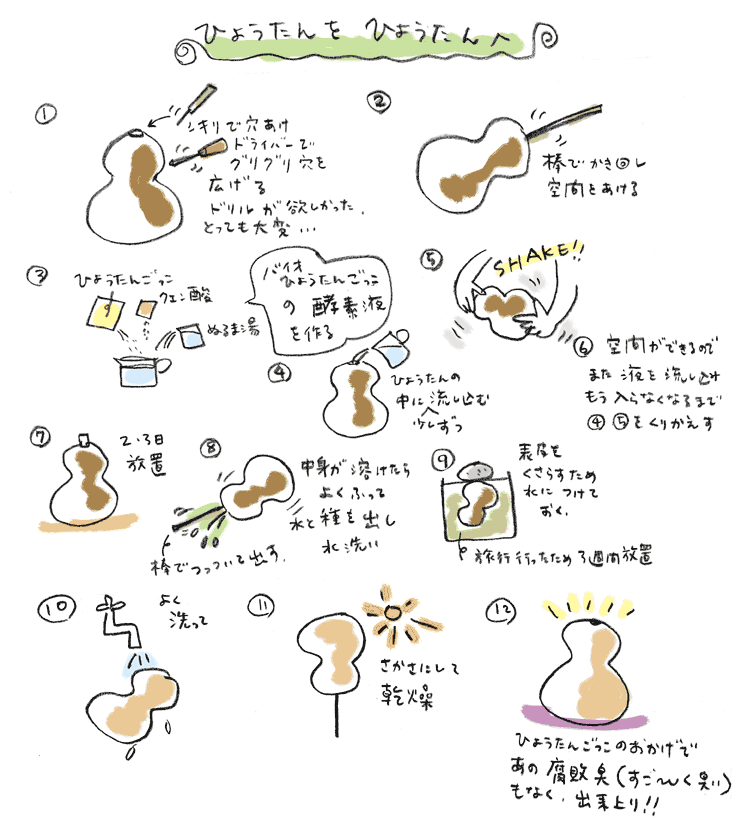 ひょうたんを ひょうたんへ
①
キリで穴あけ
ドライバーで
グリグリ穴を
広げる
ドリルが欲しかった.
とっても大変...
②
棒でかき回し
空間をあける
③
ひょうたんごっこ
クエン酸
ぬるま湯
バイオ
ひょうたんごっこ
の 酵素液
を作る
④
ひょうたんの
中に流し込む
少しずつ
⑤
SHAKE!!
⑥ 空間ができるので
また 液を 流し込み
もう 入らなくなるまで
④ ⑤ をくりかえす
⑦
2・3日
放置
⑧
中身が 溶けたら
よくふって
水と種を出し
水洗い
棒でつっついて出す.
⑨
表皮を
くさらすため
水に つけて
おく.
旅行行ったため 3週間放置
⑩
よく
洗って
⑪
さかさにして
乾燥
⑫
ひょうたんごっこのおかげで
あの 腐敗臭(すご〜く臭い)
もなく. 出来上り!!